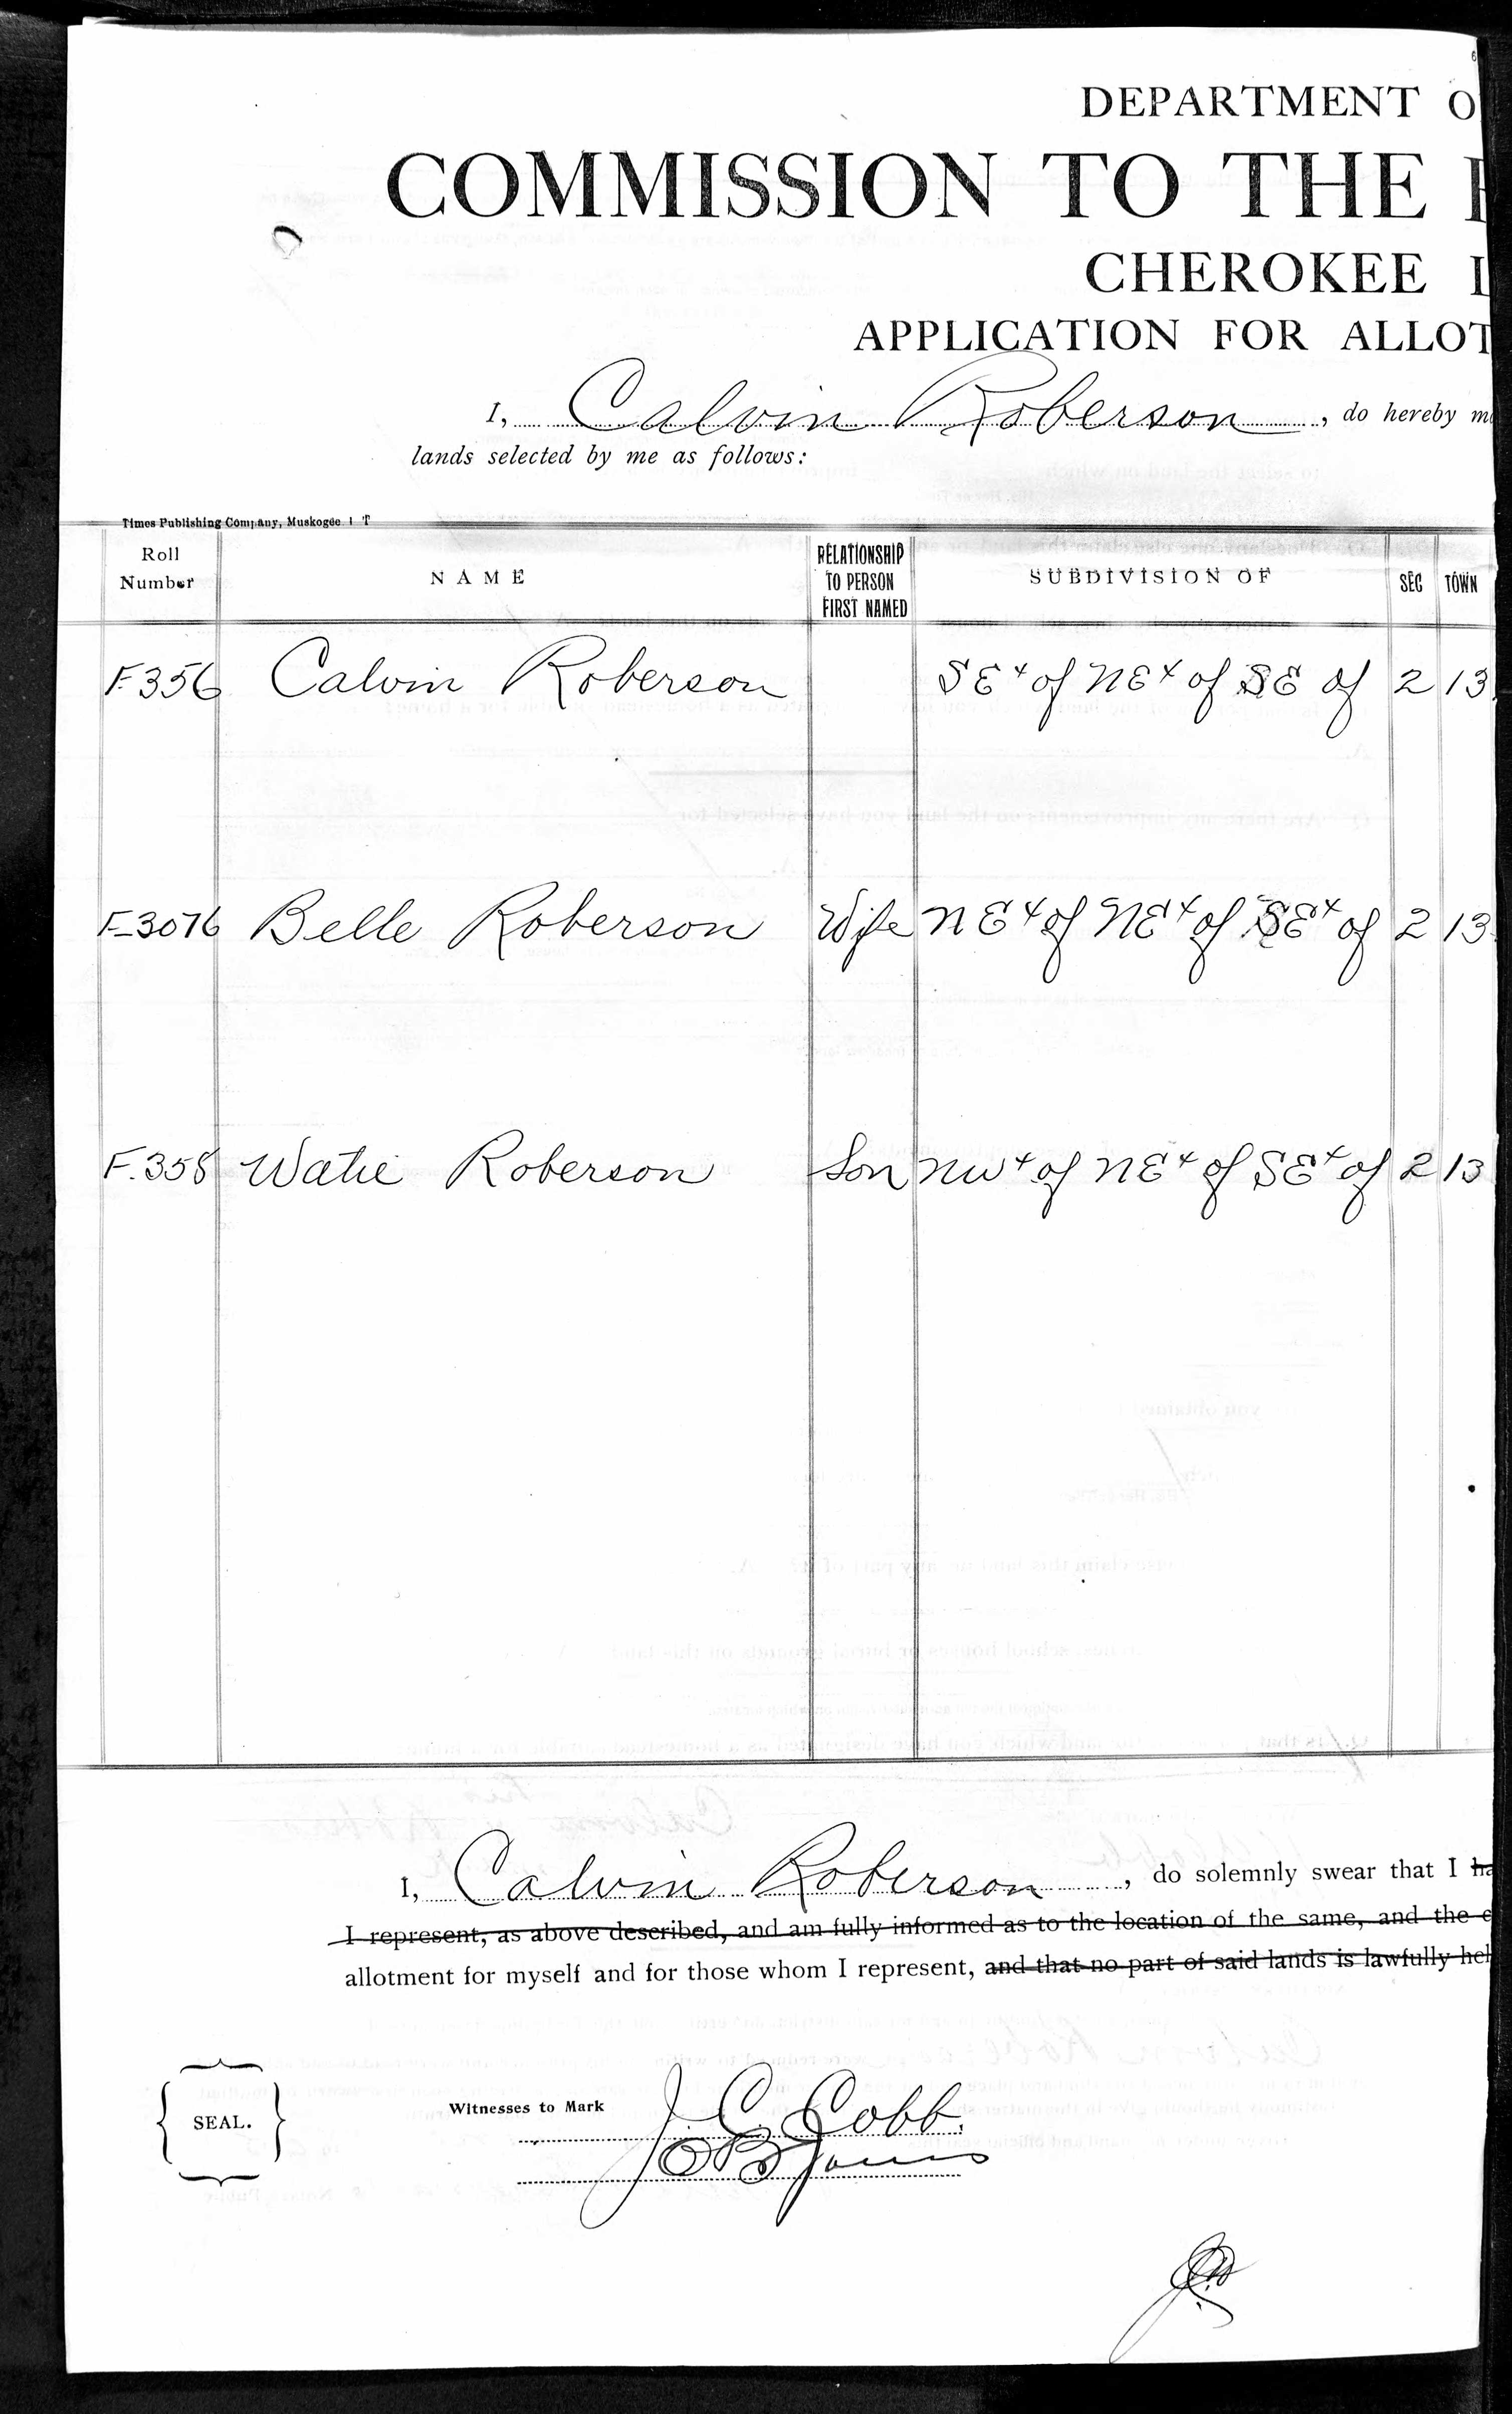 DEPARTMENT O
COMMISSION TO THE
CHEROKEE L
APPLICATION FOR ALLOT
I, Calvin Roberson, do hereby m
lands selected by me as follows:
Times Publishing Company, Muskogee I T
Roll Number NAME RELATIONSHIP TO PERSON FIRST NAMED SUBDIVISION OF SEC TOWN
F.356 Calvin Roberson SE4 of NE4 of SE of 2 13
F-3076 Belle Roberson Wife NE4 of NE4 of SE4 of 2 13
F.358 Watie Roberson Son NW4 of NE4 of SE4 of 2 13
I, Calvin Roberson, do solemnly swear that I ha
I represent, as above described, and am fully informed as to the location of the same, and the c
allotment for myself and for those whom I represent, and that no part of said lands is lawfully hel
SEAL.
Witnesses to Mark
J. C. Cobb.
OB Jones